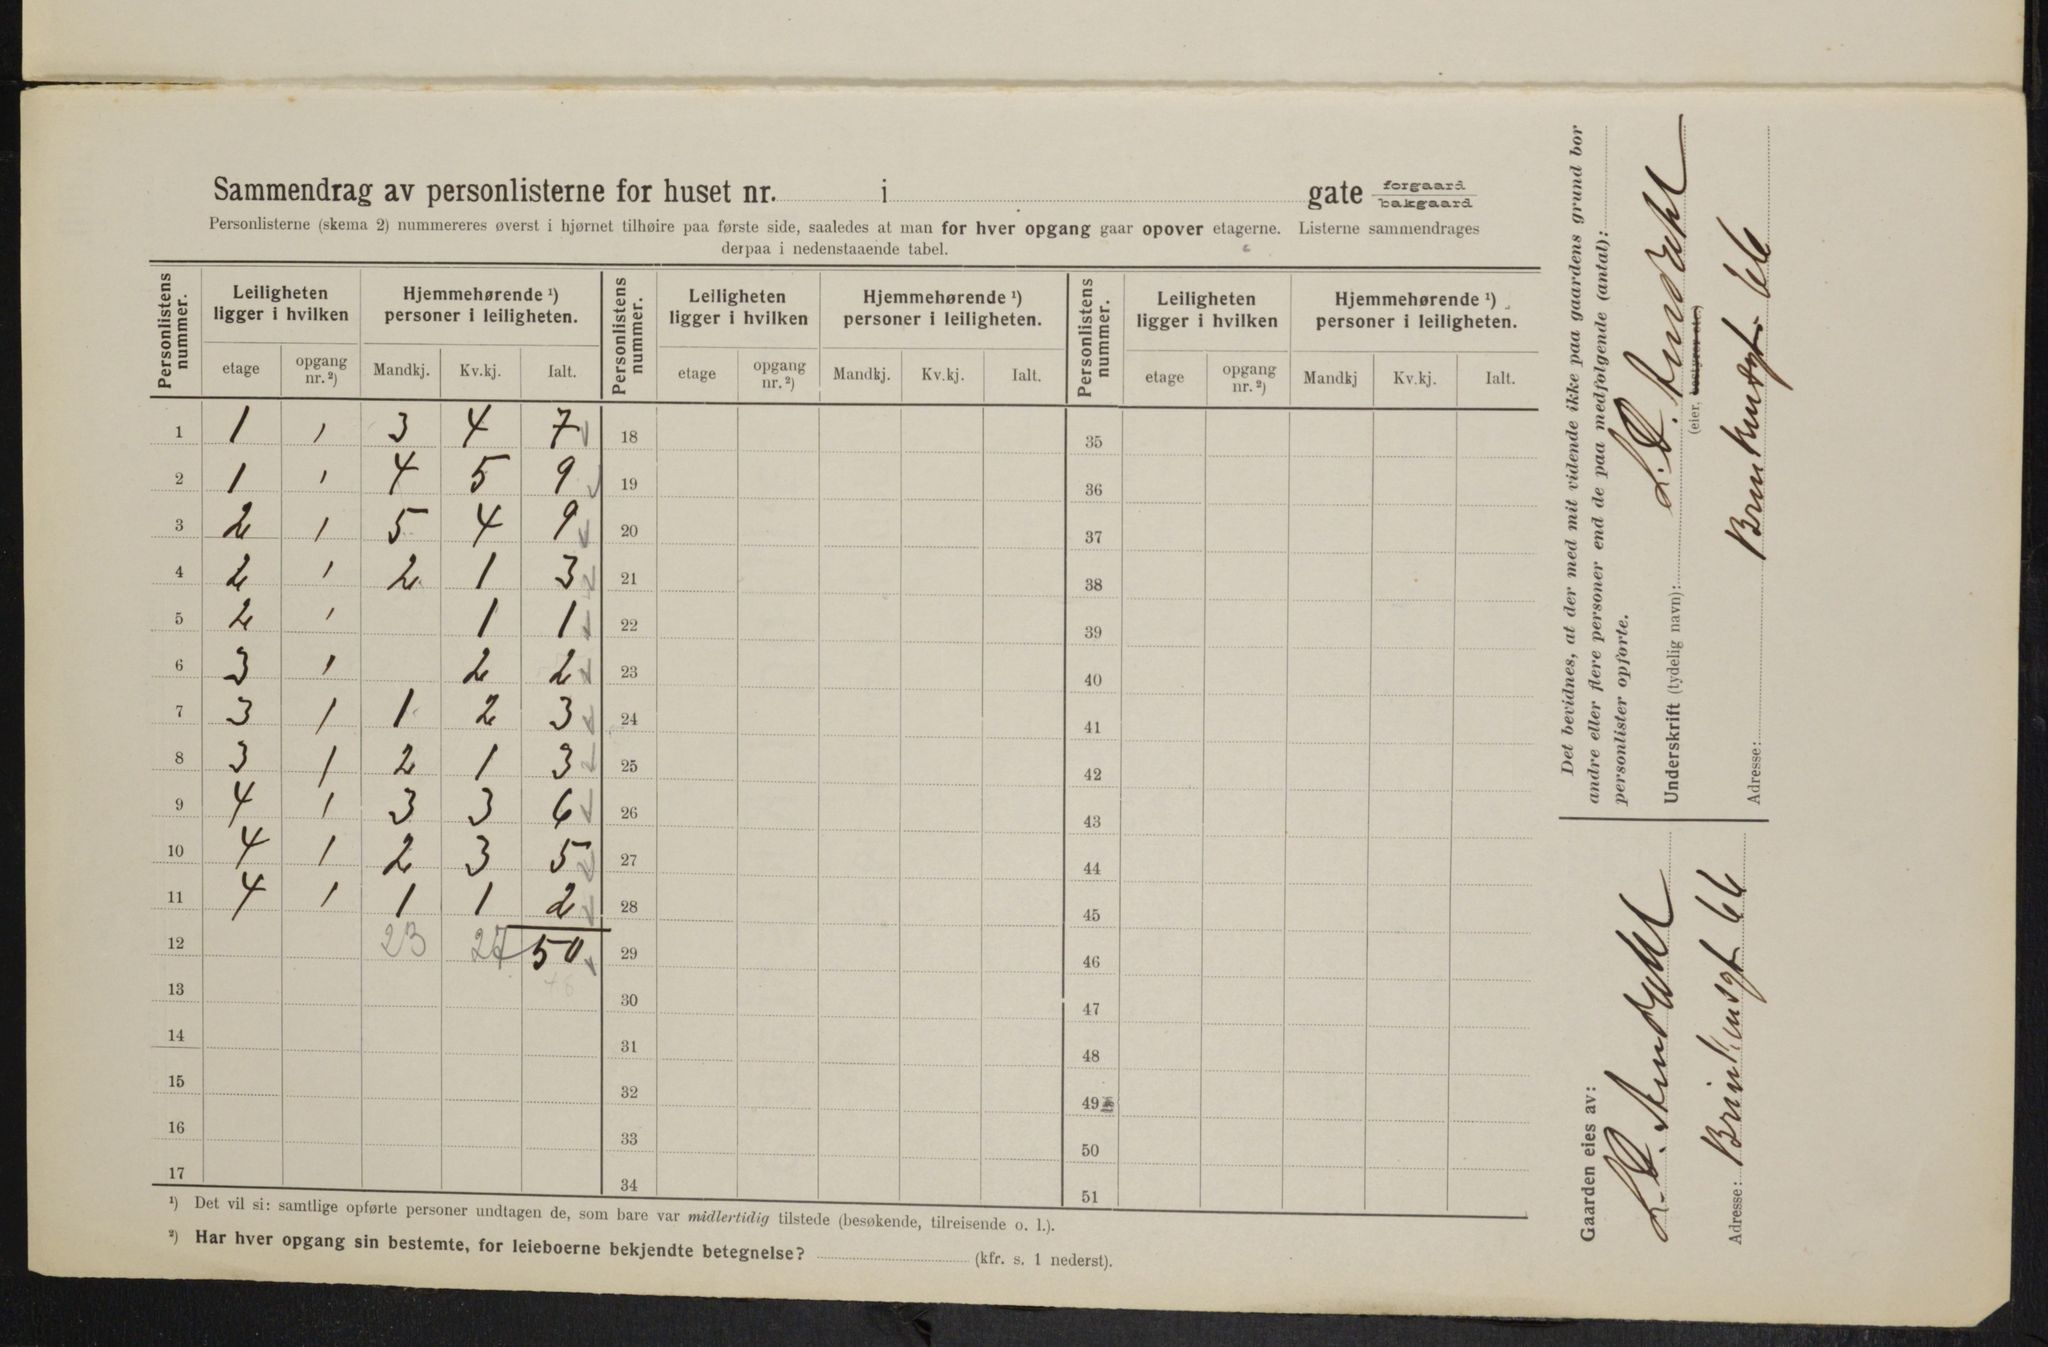 Sammendrag av personlisterne for huset nr. i gate forgaard bakgaard
Personlisterne (skema 2) nummereres øverst i hjørnet tilhøire paa første side, saaledes at man for hver opgang gaar opover etagerne. Listerne sammendrages
derpaa i nedenstaaende tabel.
Personlistens nummer. Leiligheten ligger i hvilken Hjemmehørende ¹) personer i leiligheten. Personlistens nummer. Leiligheten ligger i hvilken Hjemmehørende ¹) personer i leiligheten. Personlistens nummer. Leiligheten ligger i hvilken Hjemmehørende ¹) personer i leiligheten.
etage opgang nr. ²) Mandkj. Kv.kj. Ialt. etage opgang nr. ²) Mandkj. Kv.kj. Ialt. etage opgang nr. ²) Mandkj Kv.kj. Ialt.
1 1 1 3 4 7 18 35
2 1 1 4 5 9 19 36
3 2 1 5 4 9 20 37
4 2 1 2 1 3 21 38
5 2 1 1 1 22 39
6 3 1 2 2 23 40
7 3 1 1 2 3 24 41
8 3 1 2 1 3 25 42
9 4 1 3 3 6 26 43
10 4 1 2 3 5 27 44
11 4 1 1 1 2 28 45
12 23 27 50 29 46
13 30 47
14 31 48
15 32 49
16 33 50
17 34 51
¹) Det vil si: samtlige opførte personer undtagen de, som bare var midlertidig tilstede (besøkende, tilreisende o. l.).
²) Har hver opgang sin bestemte, for leieboerne bekjendte betegnelse? (kfr. s. 1 nederst).
Det bevidnes, at der med mit vidende ikke paa gaardens grund bor
andre eller flere personer end de paa medfølgende (antal):
personlister opførte.
Underskrift (tydelig navn):
(eier, bestyrer etc.)
Adresse: Brinkensgt. 66
Gaarden eies av:
Adresse: Brinkensgt 66